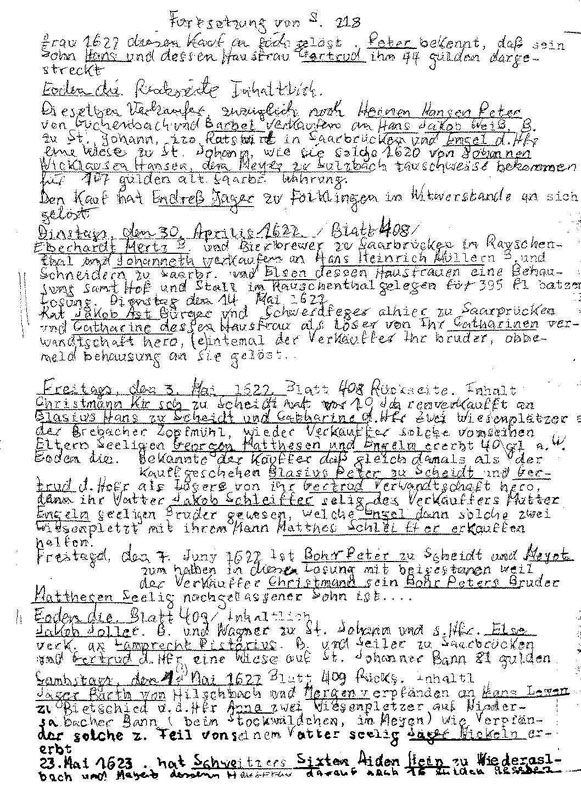 Fortsetzung von S. 218
Frau 1622 diesen Kauf an sich gelöst. Peter bekennt, daß sein
Sohn Hans und dessen Hausfrau Gertrud ihm 44 gulden darge-
streckt
Eoden die. Rückseite Inhaltlich.
Dieselben Verkaufer, zuzüglich noch Heinen Hansen Peter
von Guchenbach und Barbel verkaufen an Hans Jakob Weiß, B.
zu St. Johann, izo Ratswirt in Saarbrücken und Engel d.Hfr
eine Wiese zu St. Johann, wie sie solche 1620 von Johannen
Nicklausen Hansen, dem Meyer zu Sulzbach tauschweise bekommen
für 107 gulden alt. Saarbr. Währung.
Den Kauf hat Endreß Jager zu Folklingen im Witwerstande an sich
gelöst
Dinstags, den 30. Aprilis 1622. / Blatt 408/
Eberhardt Mertz B. und Bierbrewer zu Saarbrücken im Rauschen-
thal und Johanneth verkaufen an Hans Heinrich Müllern B. und
Schneidern zu Saarbr. und Elsen dessen Hausfrauen eine Behau-
sung samt Hof und Stall im Rauschenthal gelegen für 395 fl batzen
Losung. Dienstag den 14 Mai 1622
Hat Jakob Ast Bürger und Schwerdfeger alhier zu Saarprücken
und Catharine dessen Hausfrau als Löser von Ihr Catharinen ver-
wandtschaft hero, (eintemal der Verkauffer Ihr bruder, obbe-
meld behausung an sie gelöst..
Freitags, den 3. Mai 1622. Blatt 408 Rückseite. Inhalt
Christmann Kirsch zu Scheidt hat vor 10 Jahren verkaufft an
Blasius Hans zu Scheidt und Catharine d.Hfr zwei Wiesenplätzer a
der Brebacher Zopfmühl, wieder Verkauffer solche von seinen
Eltern Seeligen Georgen Matthesen und Engeln ererbt 40 gl a.W.
Eoden die. Bekante der Käuffer daß gleich damals als der
Kauff geschehen Blasius Peter zu Scheidt und Ger-
trud d.Hfr als Lösers von ihr Gertrud Verwandtschaft hero,
dann ihr Vatter Jakob Schleiffer selig des Verkäuffers Mutter
Engeln seeligen Bruder gewesen, welche Engel dann solche zwei
Wiesenpletzt mit ihrem Mann Matthes Schleiffer erkauffen
helfen.
Freitagd, den 7. Juny 1622 Ist Bohr Peter zu Scheidt und Meyet
zum halben in diesen Losung mit beigestanen weil
der Verkäuffer Christmann sein Bohr Peters Bruder
Matthesen Seelig nachgelassener Sohn ist....
Eoden die. Blatt 409/ Inhaltlich
Jakob Joller. B. und Wagner zu St. Johann und s.Hfr. Else
verk. an Lamprecht Pistorius. B. und Seiler zu Saarbrücken
und Gertrud d.Hfr eine Wiese auf St. Johanner Bann 81 gulden
Sambstags, den Mai 1622 Blatt 409 Rücks. Inhaltl
Jager Barth von Hilschbach und Mergen verpfänden an Hans Lewen
zu Bietschied u.d.Hfr Anna zwei Wiesenpletzer auf Nieder-
sa bacher Bann ( beim Stockwäldchen, im Meyen) wie Verpfän-
der solche z. Teil von seinem Vatter seelig Jager Nickeln er-
erbt
23. Mai 1623. hat Schweitzers Sixten Aiden Hein zu Wiederasl-
bach und Meyet dessen Hausfrau darauf nach 16 Gulden